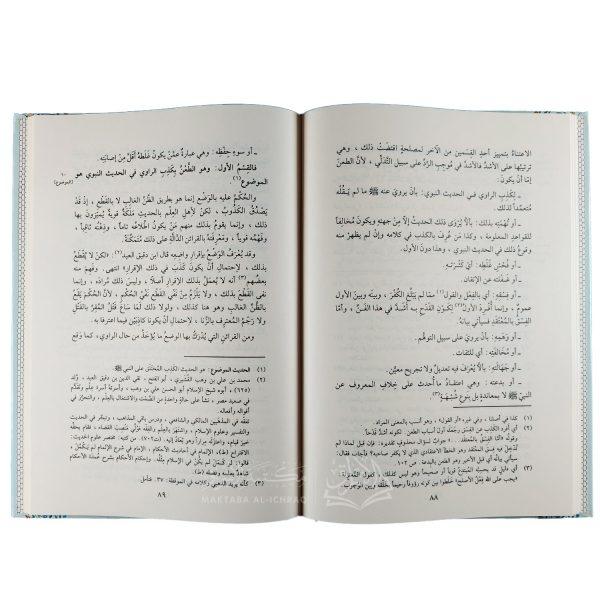 الاعتناءُ بتمييز أحدِ القِسمين من الآخر لمصلحةٍ اقتضتْ ذلك ، وهي
ترتيبُها على الأشدّ فالأشدّ في مُوجِبِ الرَّدِّ على سبيل التَّدَلّي ، لأن الطعن
إمّا أنْ يكونَ :
ـ لِكَذِبِ الراوي في الحديث النبوي: بأنْ يرويَ عنه ﷺ ما لم يَقُلْه
متعمِّداً لذلك .
ـ أو تُهْمتِه بذلك: بألاَّ يُرْوَى ذلك الحديثُ إلاَّ مِنْ جهتِه ويكونُ مُخالفاً
للقواعد المعلومة ، وكذا مَن عُرِفَ بالكذب في كلامه وإن لم يظهرْ منه
وقوعُ ذلك في الحديث النبوي ، وهذا دونَ الأول .
ـ أو فُحْشِ غَلَطِه: أي كَثْرتِه.
ـ أو غَفلتِه عن الإتقان.
ـ أو فِسْقِه: أي بالفعل والقول(١) ممّا لم يَبْلُغِ الكُفْرَ ، وبينَه وبينَ الأول
عموم ، وإنما أُفرِدَ الأولُ(٢) لكون القَدْحِ به أشدَّ في هذا الفَنِّ ، وأمّا
الفِسْقُ بالمُعْتَقَدِ فسيأتي بيانُه.
ـ أو وَهَمِه: بأنْ يرويَ على سبيل التوهُّم.
ـ أو مُخالفتِه: أي للثقات.
ـ أو جَهالتِه: بألاَّ يُعرَفَ فيه تعديلٌ ولا تجريحٌ معيَّن.
ـ أو بدعتِه: وهي اعتقادُ ما أُحدِثَ على خِلافِ المعروف عن
النبيّ ﷺ لا بمعاندةٍ بل بنوعِ شُبْهَةٍ(٣)
(١) كذا في أصلنا ، وفي غيره «أو القول» ، وهي بالمعنى المراد.
٨٨
ـ أو سوءِ حِفْظِه: وهي عبارةٌ عمَّنْ يكونُ غَلَطُه أقلَّ مِنْ إصابتِه
فالقِسْمُ الأول: وهو الطَّعْنُ بكَذِبِ الراوي في الحديث النبوي هو
الموضوع(١).
(الموضوع)
والحُكْمُ عليه بالوَضْع إنما هو بطريق الظَّنِّ الغالب لا بالقَطْع ، إذْ قَدْ
يَصْدُقُ الكَذُوبُ ، لكنْ لأهل العِلْمِ بالحديثِ مَلَكةٌ قويةٌ يُميِّزون بها
ذلك ، وإنما يقومُ بذلك منهم مَنْ يكونُ اطِّلاعُه تامّاً ، وذِهْنُه ثاقباً ،
وفَهْمُه قوياً ، ومَعْرِفتُه بالقرائنِ الدالَّةِ على ذلك مُتمكِّنةً.
وقد يُعرَفُ الوَضْعُ بإقرارِ واضعِه قال ابن دقيق العيد(٢): «لكنْ لا يُقْطَعُ
بذلك ، لاحتمالِ أنْ يكونَ كَذَبَ في ذلك الإقرار» انتهى ، وفَهِمَ منه
بعضُهم(٣) أنه لا يُعْمَلُ بذلك الإقرارِ أصلاً ، وليس ذلك مُرادَه ، وإنما
نفى القطعَ بذلك ، ولا يَلْزَمُ مِنْ نفيِ القَطْعِ نَفْيُ الحُكْمِ ، لأنَّ الحُكْمَ يَقَعُ
بالظَّنِّ الغالبِ وهو هنا كذلك ، ولولا ذلك لَمَا سَاغَ قَتْلُ المُقِرِّ بالقَتلِ
ولا رَجْمُ المعترفِ بالزِّنا ، لاحتمالِ أنْ يكونا كاذِبَيْنِ فيما اعترفا به.
ومن القرائنِ التي يُدْرَكُ بها الوضعُ ما يُؤْخَذُ مِنْ حالِ الراوي، كما وَقَع
(١) الحديث الموضوع: هو الحديث الكذب المُختلَق على النبي ﷺ
(٢) محمد بن علي بن وهب القُشيري ، أبو الفتح ، تقي الدين بن دقيق العيد
(٣) كأنه يريد الذهبي وكلامه في الموقظة: ٣٧. فتأمل
٨٩
MAKTABA AL-ICHRAQ